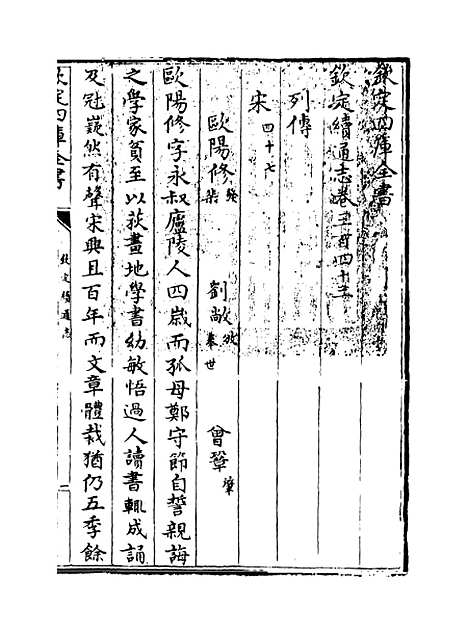 欽定四庫全書
欽定續通志卷三百四十三
列傳
宋 四十七
歐陽修 發 棐 劉敞 攽 奉世 曾鞏 肇
歐陽修字永叔廬陵人四歲而孤母鄭守節自誓親誨
之學家貧至以荻畫地學書幼敏悟過人讀書輒成誦
及冠嶷然有聲宋興且百年而文章體裁猶仍五季餘
欽定四庫全書
欽定續通志